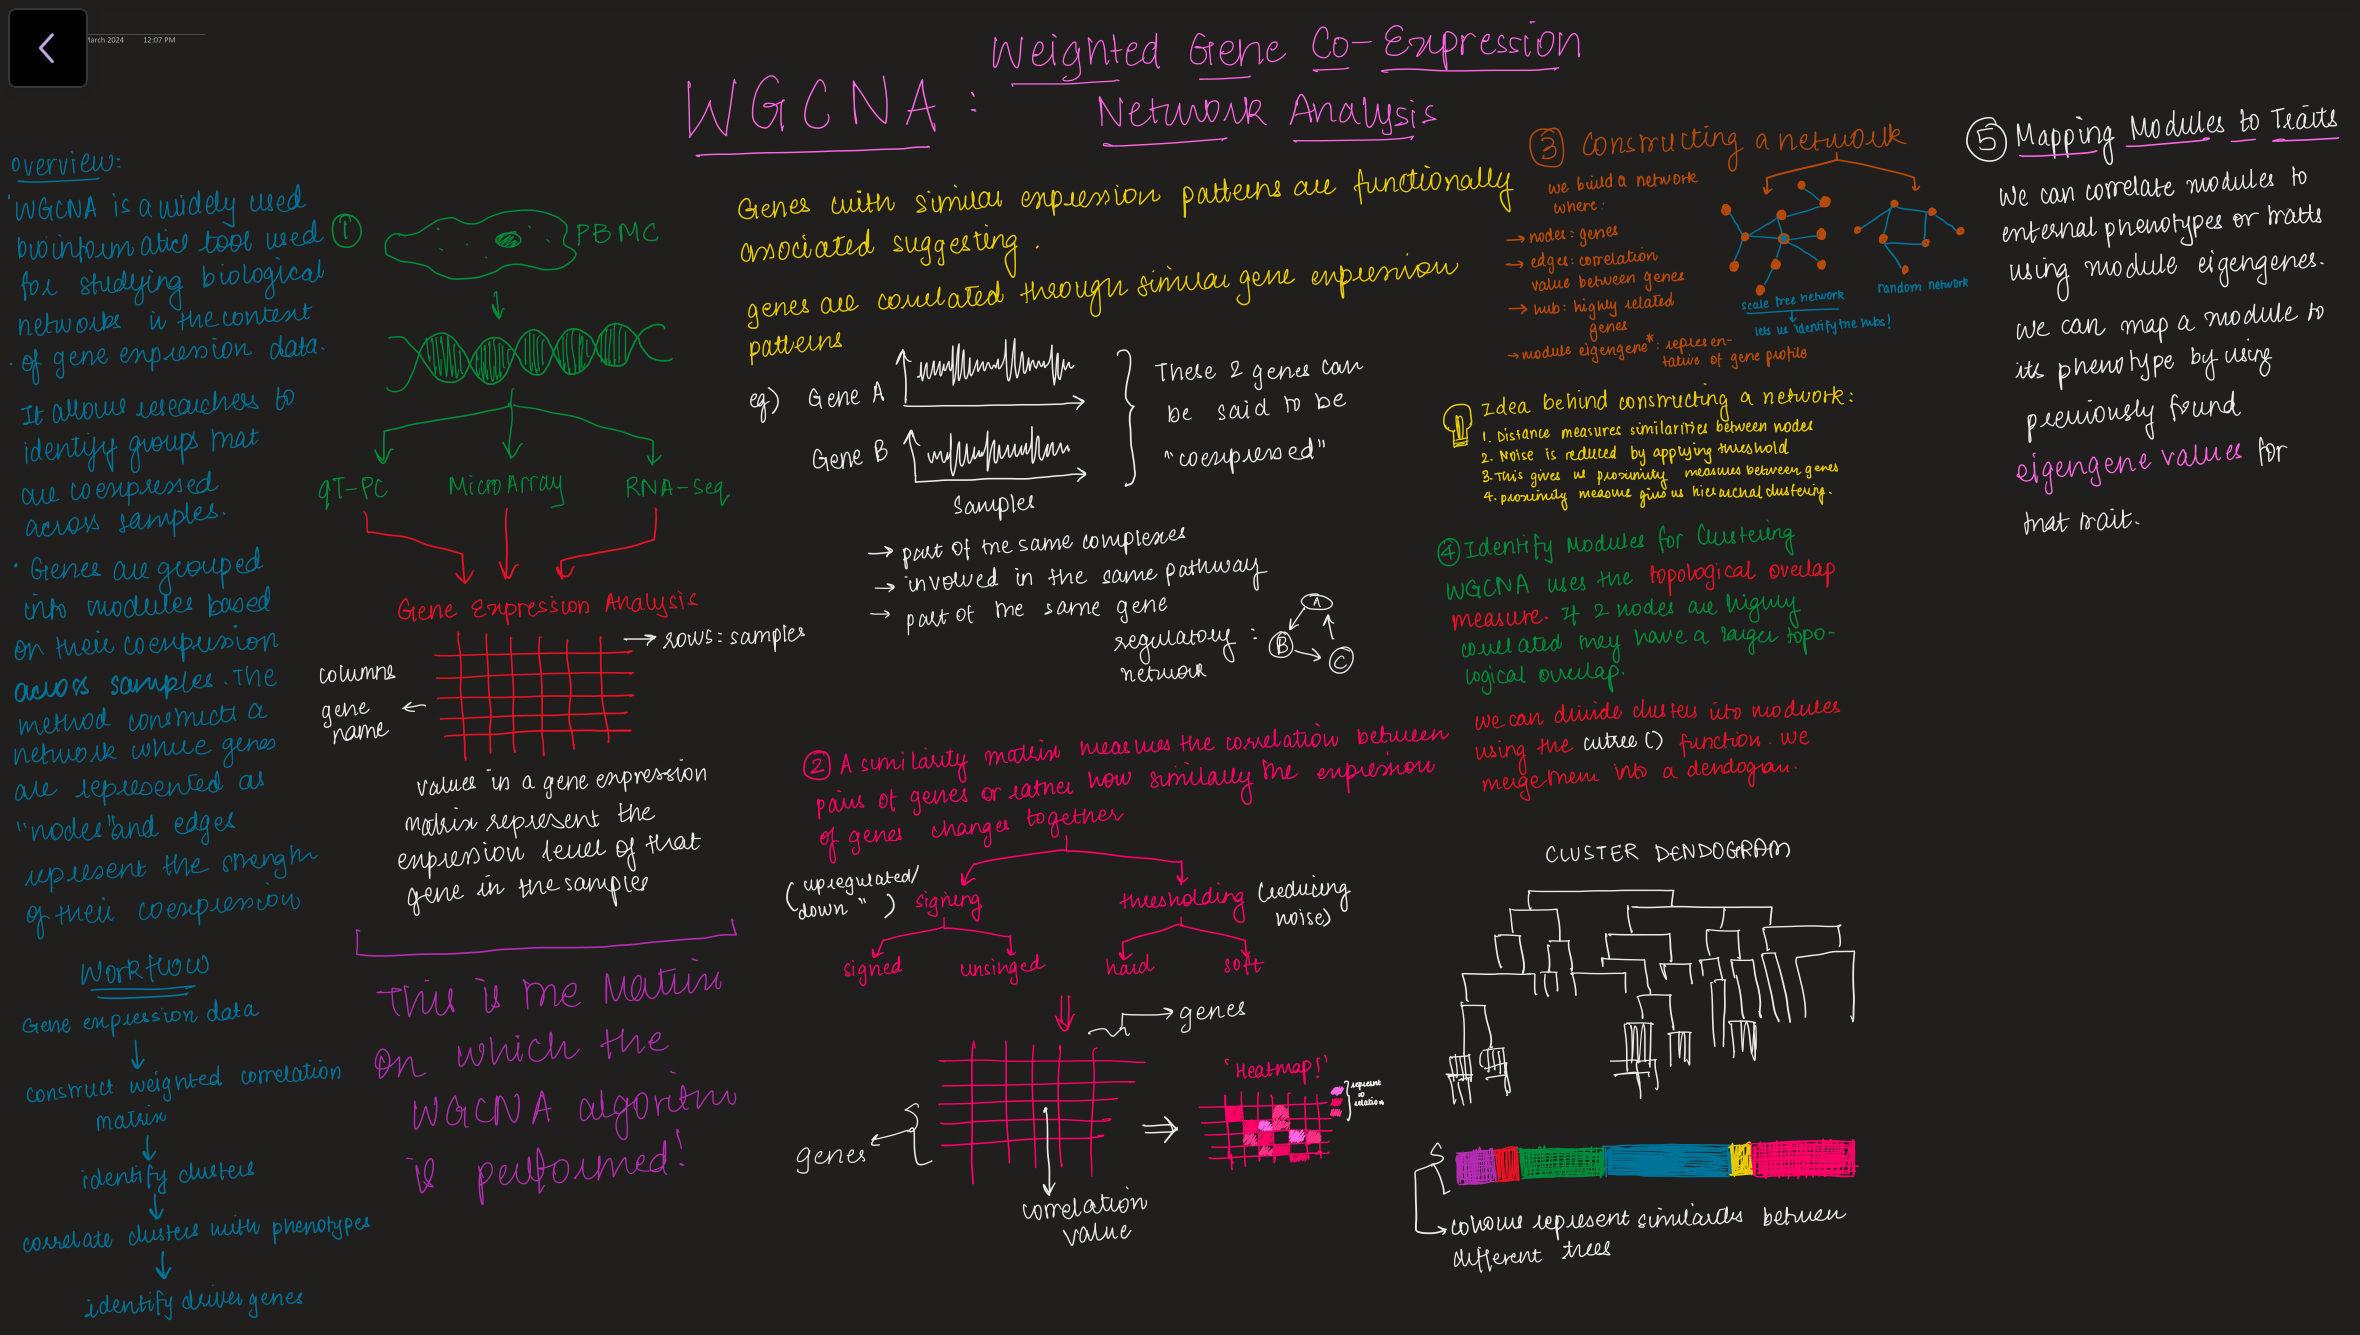 March 2024 12:07 PM
Weighted Gene Co-Expression
WGCNA : Network Analysis
overview:
WGCNA is a widely used
bioinformatics tool used
for studying biological
networks in the context
of gene expression data.
It allows researchers to
identify groups that
are coexpressed
across samples.
Genes are grouped
into modules based
on their coexpression
across samples. The
method constructs a
network where genes
are represented as
"nodes" and edges
represent the strength
of their coexpression
Workflow
Gene expression data
construct weighted correlation
matrix
identify clusters
correlate clusters with phenotypes
identify driver genes
1 PBMC
qT-PC MicroArray RNA-Seq
Gene Expression Analysis
rows: samples
columns
gene
name
values in a gene expression
matrix represent the
expression level of that
gene in the samples
This is the Matrix
on which the
WGCNA algorithm
is performed!
Genes with similar expression patterns are functionally
associated suggesting.
genes are correlated through similar gene expression
patterns
eg) Gene A
Gene B
Samples
These 2 genes can
be said to be
"coexpressed"
→ part of the same complexes
→ involved in the same pathway
→ part of the same gene
regulatory :
network
A
B
C
2 A similarity matrix measures the correlation between
pairs of genes or rather how similarly the expression
of genes changes together
(upregulated/
down ")
signing
thresholding
(reducing
noise)
signed unsinged hard soft
genes
genes
correlation
value
'Heatmap!'
represent
relation
3 Constructing a network
we build a network
where:
→ nodes: genes
→ edges: correlation
value between genes
→ hub: highly related
genes
→ module eigengene*: represen-
tative of gene profile
scale free network
lets us identify the hubs!
random network
Idea behind constructing a network:
1. Distance measures similarities between nodes
2. Noise is reduced by applying threshold
3. This gives us proximity measures between genes
4. proximity measure gives us hierarchal clustering.
4 Identify Modules for Clustering
WGCNA uses the topological overlap
measure. If 2 nodes are highly
correlated they have a larger topo-
logical overlap.
we can divide clusters into modules
using the cutree() function. we
merge them into a dendogram.
CLUSTER DENDOGRAM
colours represent similarities between
different trees
5 Mapping Modules to Traits
We can correlate modules to
external phenotypes or traits
using module eigengenes.
we can map a module to
its phenotype by using
previously found
eigengene values for
that trait.